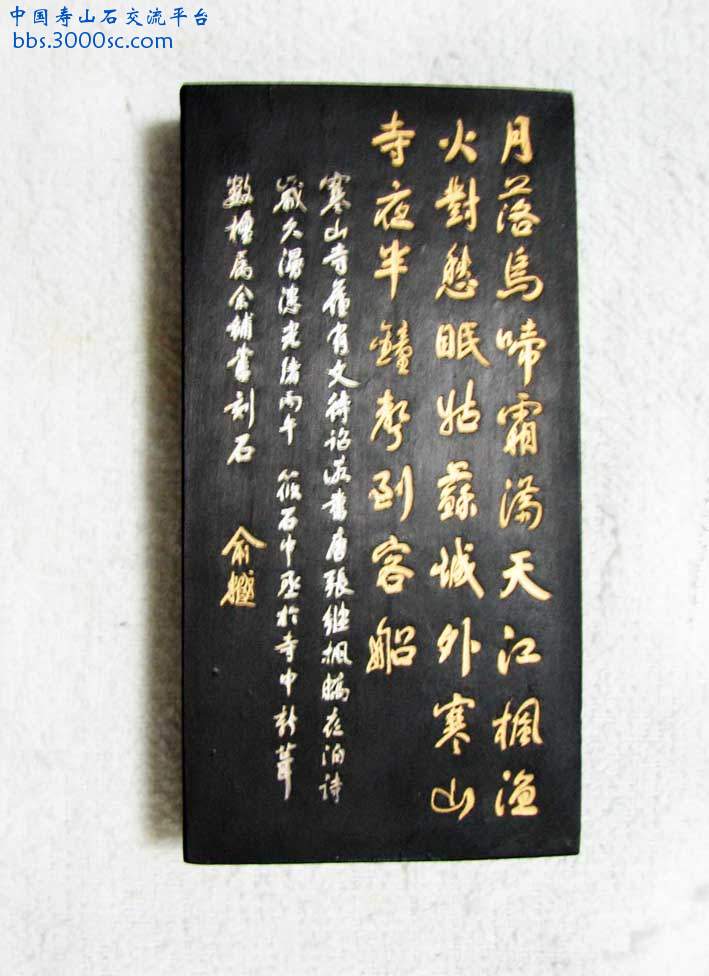 中国寿山石交流平台
bbs.3000sc.com
月落烏啼霜滿天江楓漁
火對愁眠姑蘇城外寒山
寺夜半鐘聲到客船
寒山寺舊有文待詔所書唐張繼楓橋夜泊詩
歲久漫漶光緒丙午 筱石中丞於寺中新葺
數楹屬余補書刻石
俞樾